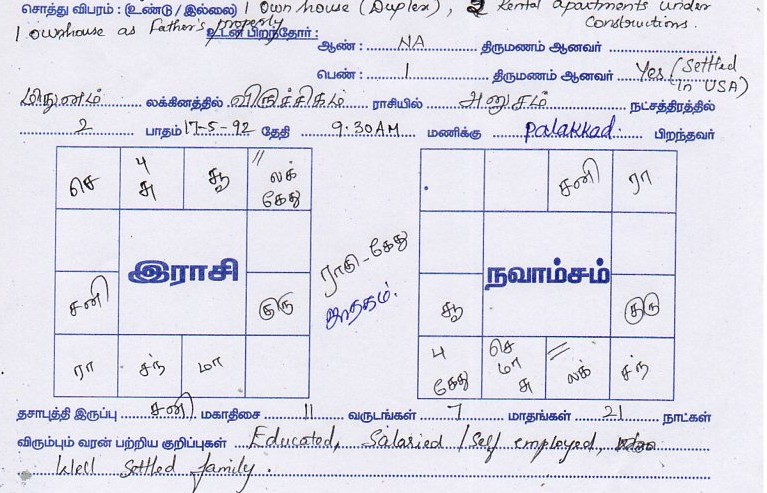 சொத்து விபரம் : (உண்டு / இல்லை) 1 Own house (Duplex), 2 Rental apartments under
1 ownhouse as Father's property உடன் பிறந்தோர் : Constructions.
ஆண் : NA திருமணம் ஆனவர்
பெண் : 1 திருமணம் ஆனவர் Yes (Settled
in USA)
மிதுனம் லக்கினத்தில் விருச்சிகம் ராசியில் அனுசம் நட்சத்திரத்தில்
2 பாதம் 17-5-92 தேதி 9.30AM மணிக்கு Palakkad. பிறந்தவர்
செ பு சு சூ லக் கேது
சனி ரா
இராசி
ராகு - கேது
ஜாதகம்.
நவாம்சம்
சனி குரு
சூ குரு
ரா சந் மா
பு கேது செ மா சு லக் சந்
தசாபுத்தி இருப்பு சனி மகாதிசை 11 வருடங்கள் 7 மாதங்கள் 21 நாட்கள்
விரும்பும் வரன் பற்றிய குறிப்புகள் Educated, Salaried / Self employed,
Well settled family.